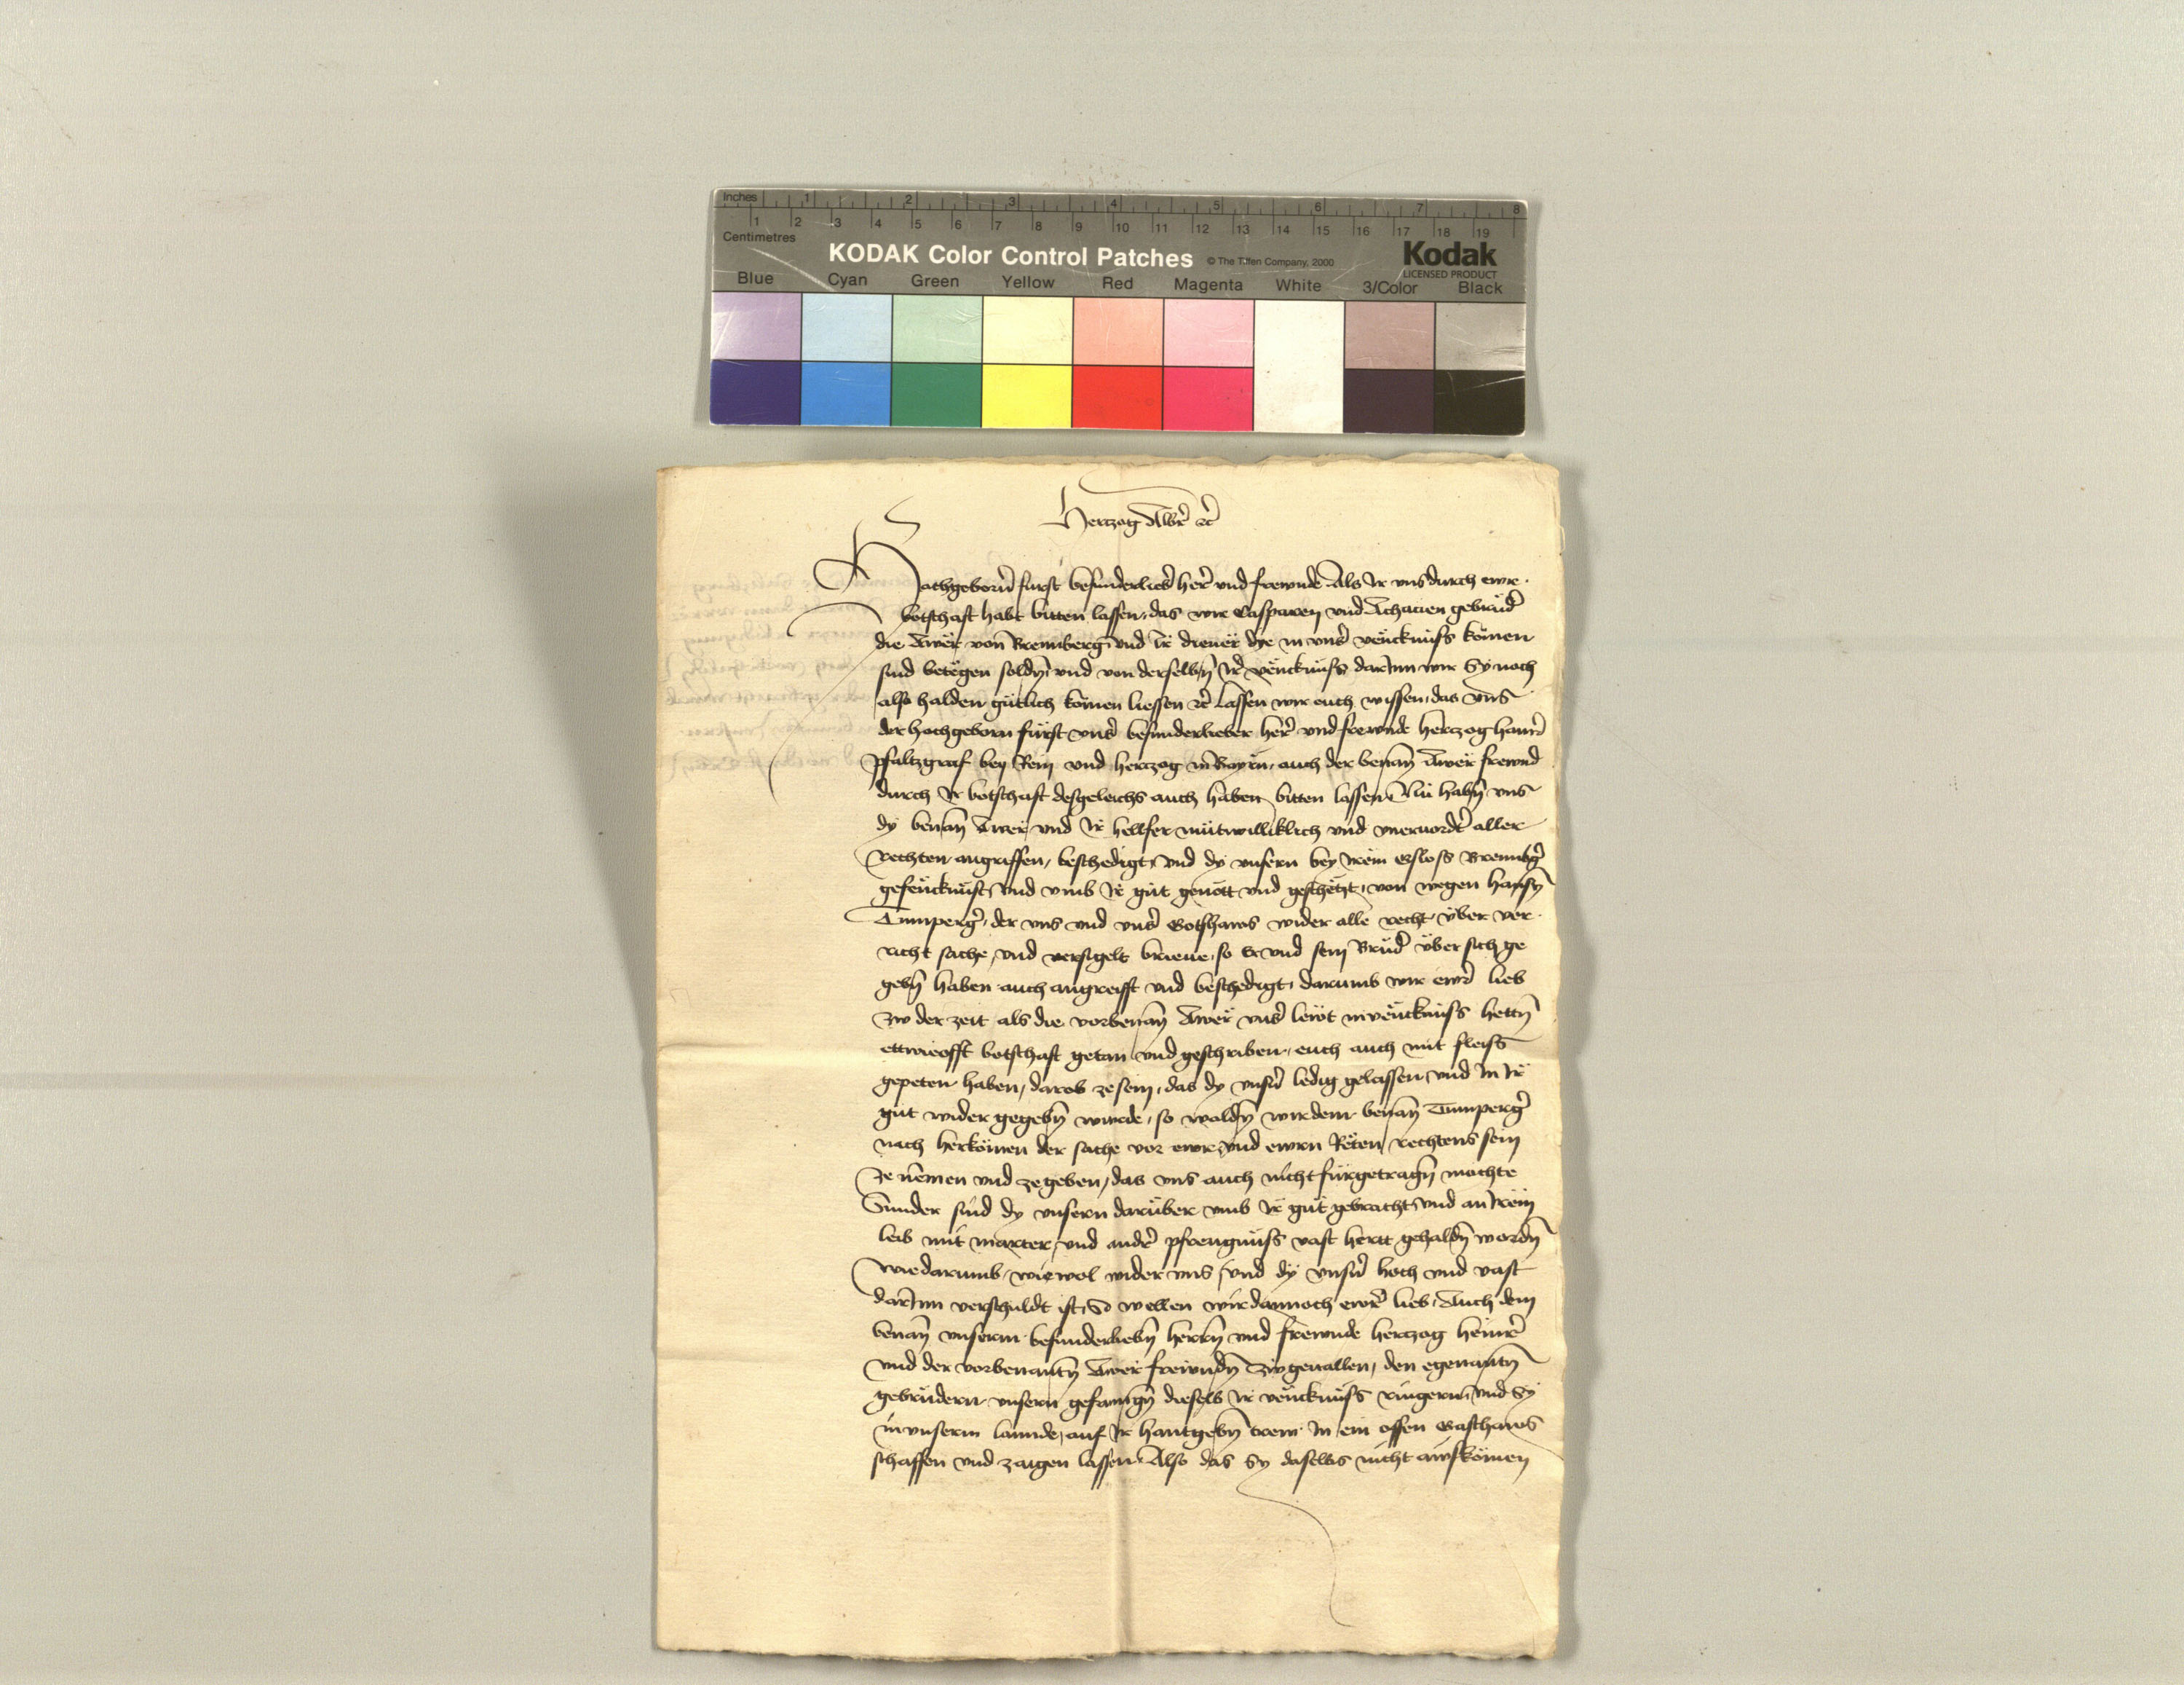 Inches 1 2 3 4 5 6 7 8
1 2 3 4 5 6 7 8 9 10 11 12 13 14 15 16 17 18 19
Centimetres
KODAK Color Control Patches © The Tiffen Company, 2000 Kodak
LICENSED PRODUCT
Blue Cyan Green Yellow Red Magenta White 3/Color Black
Hertzog Albr̄ ec̄
Hochgeborn̄ furst besunderlieb̄ her̄ vnd frewnde Als Ir vns durch ewr
botschaft habt bitten lassen, das wir Casparen vnd Achacien gebrüd̄
die Awër von Brennberg vnd Ir diener dye in vns̄ vëncknüss kömen
sind betëgen soldn̄ vnd von derselbn̄ Ir̄ vëncknüss darInn wir Sy noch
also halden gütlich kömen liessen ec̄ Lassen wir euch wissen, das vns
der hochgeborn fürst vns̄ besunderlieber her̄ vnd frewnde hertzog hainr̄
pfaltzgraf bey Rein vnd hertzog in Bayrn, auch der benan̄ Awër frewnd
durch Ir botschaft desgeleichs auch haben bitten lassen Nü habn̄ vns
dy benan̄ Awër vnd Ir hellfer mütwilliklich vnd vneruordt̄ aller
rechten angriffen, beschedigt, vnd dy vnsern bey Irem gsloss Brennbḡ
gefëncknüst, vnd vmb Ir güt genött vnd geschëtzt, von wegen hansn̄
Tumperḡ, der vns vnd vns̄ Gotshaws wider alle recht, über ver
richt sache, vnd versigelt brieue, so Er vnd sein Brüd̄ über sich ge
gebn̄ haben auch angreifft vnd beschedigt, darumb wir ewr̄ lieb
zw der zeit als die vorbenan̄ Awër vns̄ lewt in vëncknüss hettn̄
ettwieofft botschaft getan vnd geschriben, euch auch mit fleiss
gepeten haben, darob ze sein, das dy vnsr̄n ledig gelassen vnd In Ir
güt wider gegebn̄ wurde, so woldn̄ wir dem benan̄ Tumperḡ
nach herkömen der sache vor ewr vnd ewrn Rëten rechtens sein
ze nemen vnd ze geben, das vns auch nicht fürgetragn̄ mochte
Sunder sind dy vnsern darüber vmb Ir güt gebracht, vnd an Irem
leib mit marter, vnd andr̄ pfrengnüss vast hertt gehaldn̄ wordn̄
Wiedarumb, wiewol wider vns, vnd dy vnsr̄n hoch vnd vast
darInn verschuldt ist, So wellen wir dannoch ewr̄ lieb, Auch dem
benan̄ vnserm besunderliebn̄ herrn̄ vnd frewnde hertzog heinr̄
vnd der vorbenantn̄ Awër frewndn̄ zw geuallen, den egenantn̄
gebrüdern vnsern gefanngn̄ dieselb Ir vëncknüss ringern, vnd Sy
in vnserm lannde, auf Ir hantgebn̄ trew In ein offen Gasthaws
schaffen vnd zaigen lassen, Also das Sy daselbs nicht awskömen